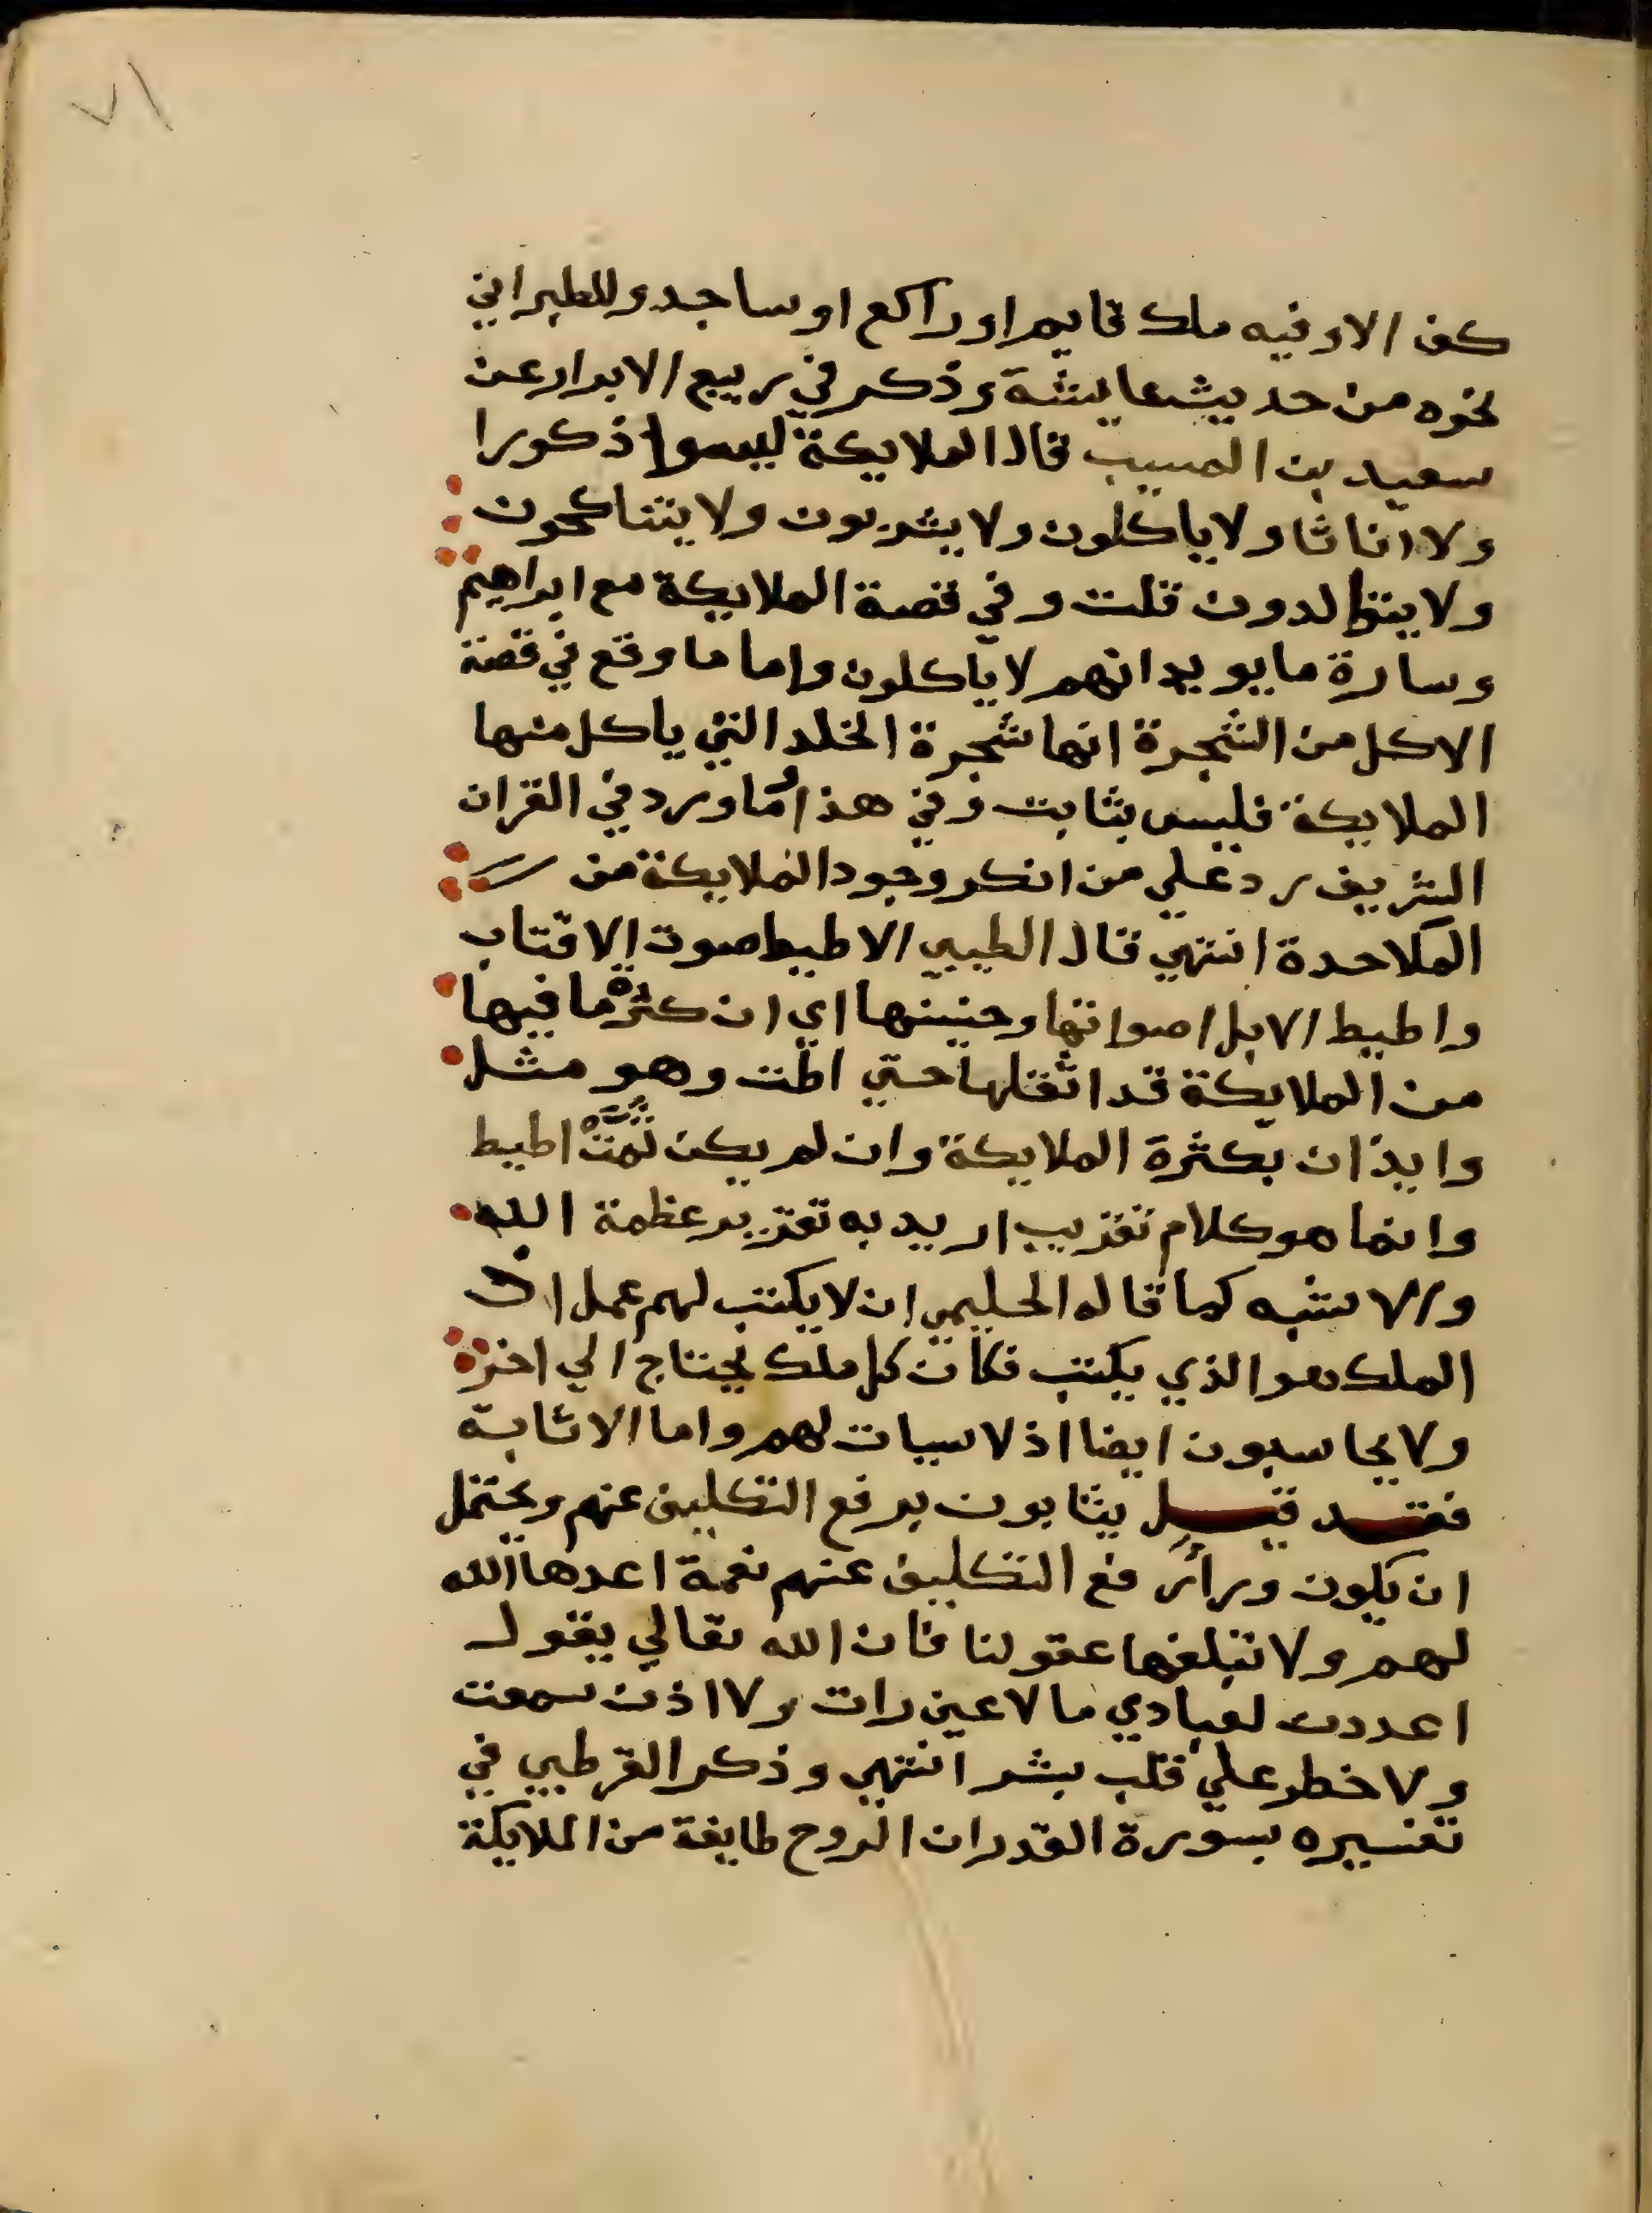 ٧١
كف الا وفيه ملك قايم او راكع او ساجد وللطبراني
نحوه من حديث عايشة وذكر في ربيع الابرار عن
سعيد بن المسيب قال الملايكة ليسوا ذكورا
ولا اناثا ولا ياكلون ولا يشربون ولا يتناكحون
ولا يتوالدون قلت وفي قصة الملايكة مع ابراهيم
وسارة ما يويد انهم لا ياكلون واما ما وقع في قصة
الاكل من الشجرة انها شجرة الخلد التي ياكل منها
الملايكة فليس بثابت وفي هذا وما ورد في القران
الشريف رد علي من انكر وجود الملايكة من
الملاحدة انتهي قال الطيبي الاطيط صوت الاقتاب
واطيط الابل اصواتها وحنينها اي ان كثرة ما فيها
من الملايكة قد اثقلها حتي اطت وهو مثل
وايذان بكثرة الملايكة وان لم يكن ثمة اطيط
وانما هو كلام تقريب اريد به تقرير عظمة الله
والاشبه كما قاله الحليمي ان لا يكتب لهم عمل اذ
الملك هو الذي يكتب فكان كل ملك يحتاج الي اخر
ولا يحاسبون ايضا اذ لا سيات لهم واما الاثابة
فقد قيل يثابون برفع التكليف عنهم ويحتمل
ان يكون ورا رفع التكليف عنهم نعمة اعدها الله
لهم ولا تبلغها عقولنا فان الله تعالي يقول
اعددت لعبادي ما لا عين رات ولا اذن سمعت
ولا خطر علي قلب بشر انتهي وذكر القرطبي في
تفسيره بسورة القدر ان الروح طايفة من الملايكة